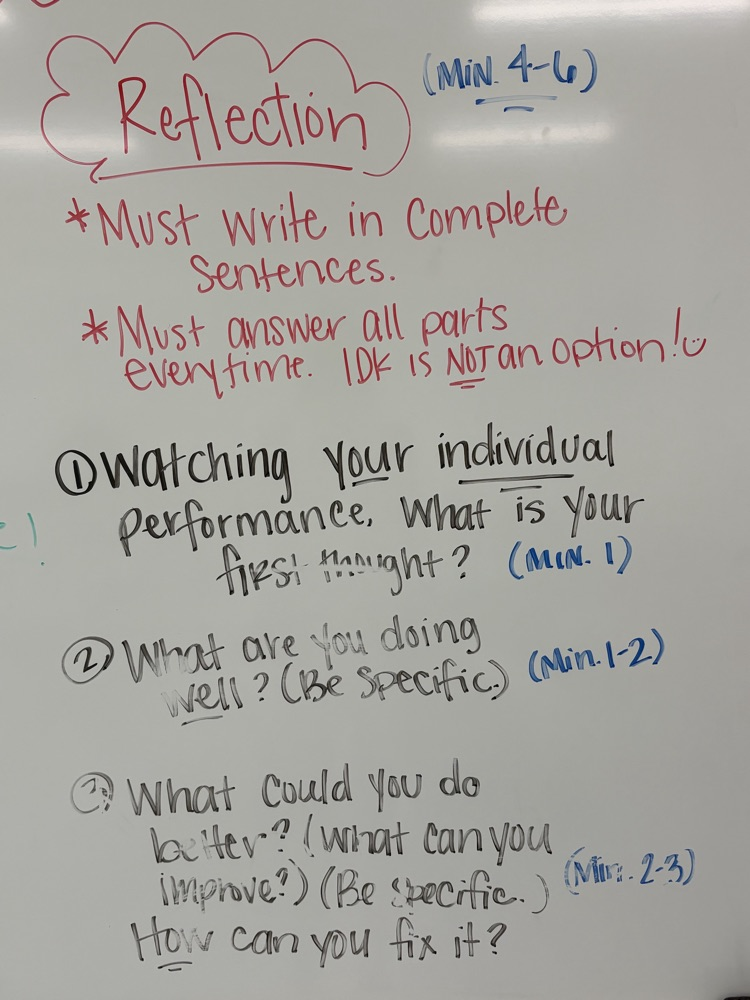 Reflection
(MIN. 4-6)
*Must write in complete
sentences.
*Must answer all parts
everytime. IDK is NOT an option!
①Watching your individual
performance, what is your
first thought? (MIN. 1)
② What are you doing
well? (Be Specific.) (Min. 1-2)
③ What could you do
better? (What can you
improve?) (Be specific.) (Min. 2-3)
How can you fix it?